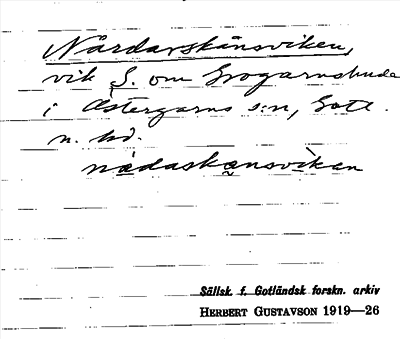 Nårdarskänsviken,
vik S. om Grogarnshuvud
i Östergarns s:n, Gotl.
n. hd.
nådaskansviken
Sällsk. f. Gotländsk forskn. arkiv
HERBERT GUSTAVSON 1919—26